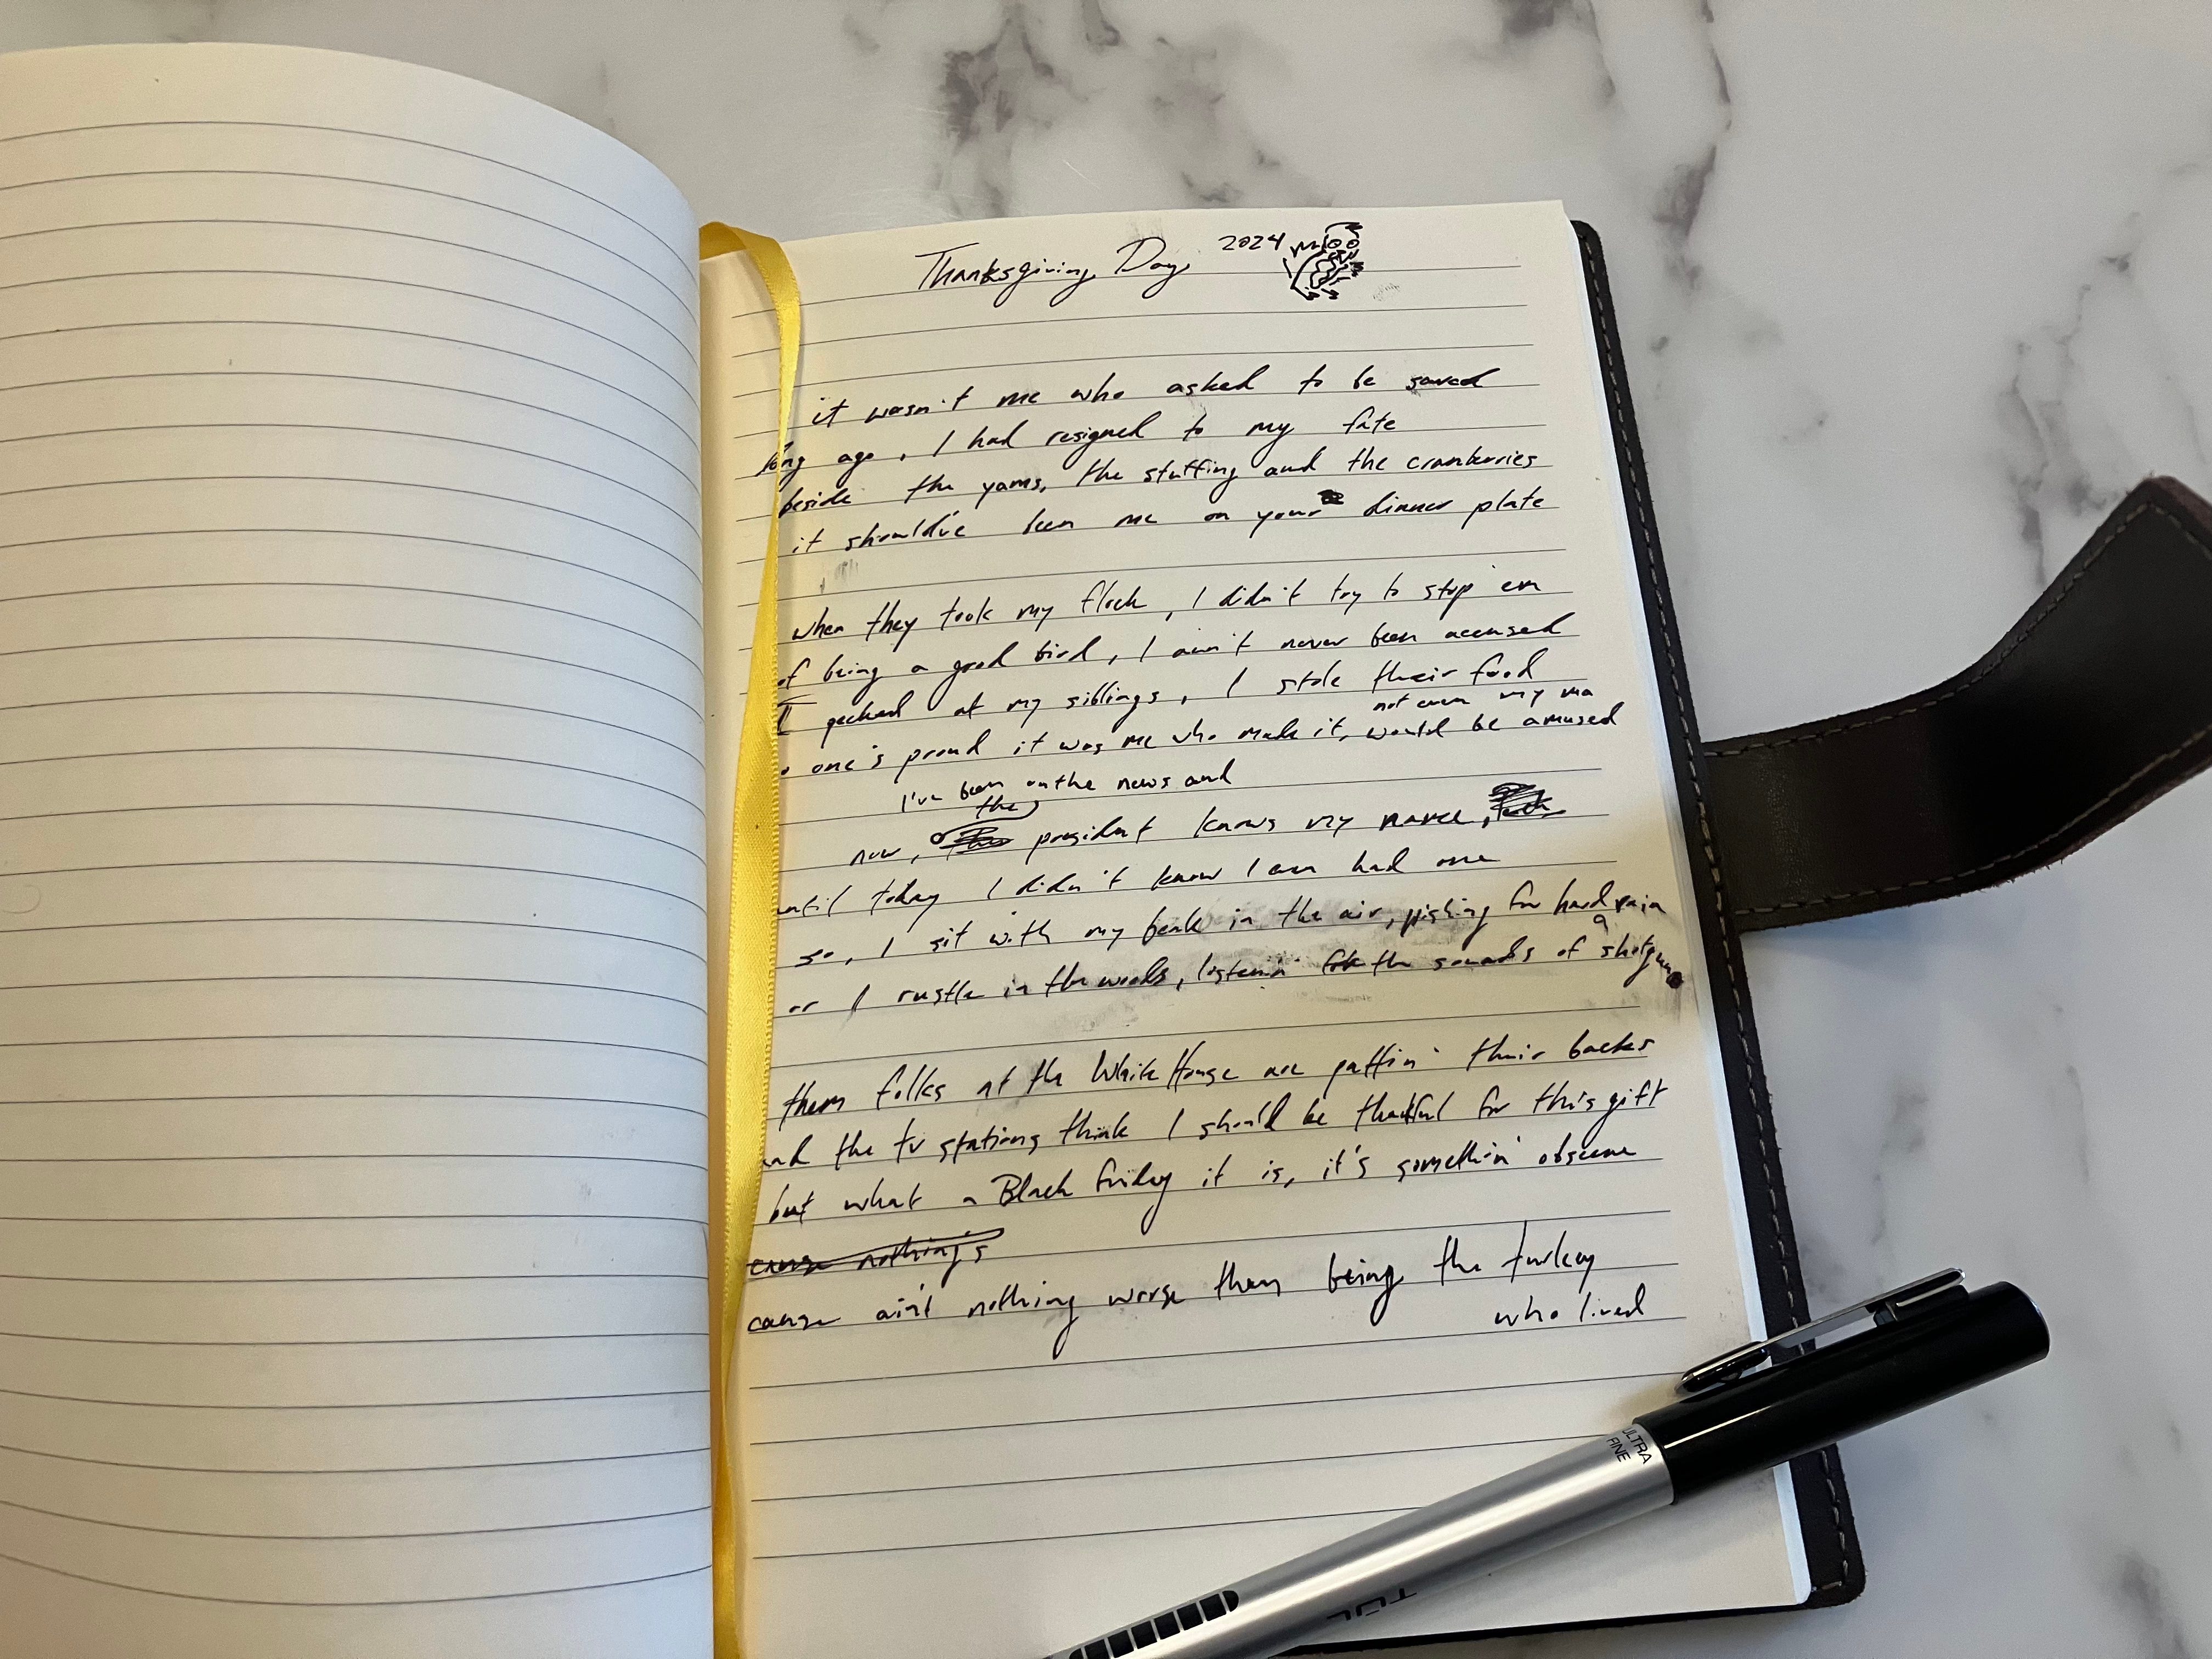 Thanksgiving Day 2024
it wasn't me who asked to be saved
long ago, I had resigned to my fate
beside the yams, the stuffing and the cranberries
it should've been me on your dinner plate
when they took my flock, I didn't try to stop 'em
of being a good bird, I ain't never been accused
I pecked at my siblings, I stole their food
not even my ma
o one's proud it was me who made it, would be amused
I've been on the news and
the
now, president knows my name,
until today I didn't know I even had one
so, I sit with my beak in the air, wishing for hard rain
a
or I rustle in the woods, listenin' for the sounds of shotguns
them folks at the White House are pattin' their backs
and the tv stations think I should be thankful for this gift
but what a Black Friday it is, it's somethin' obscene
cause nothing's
cause ain't nothing worse than being the turkey
who lived
ULTRA
FINE
TUL